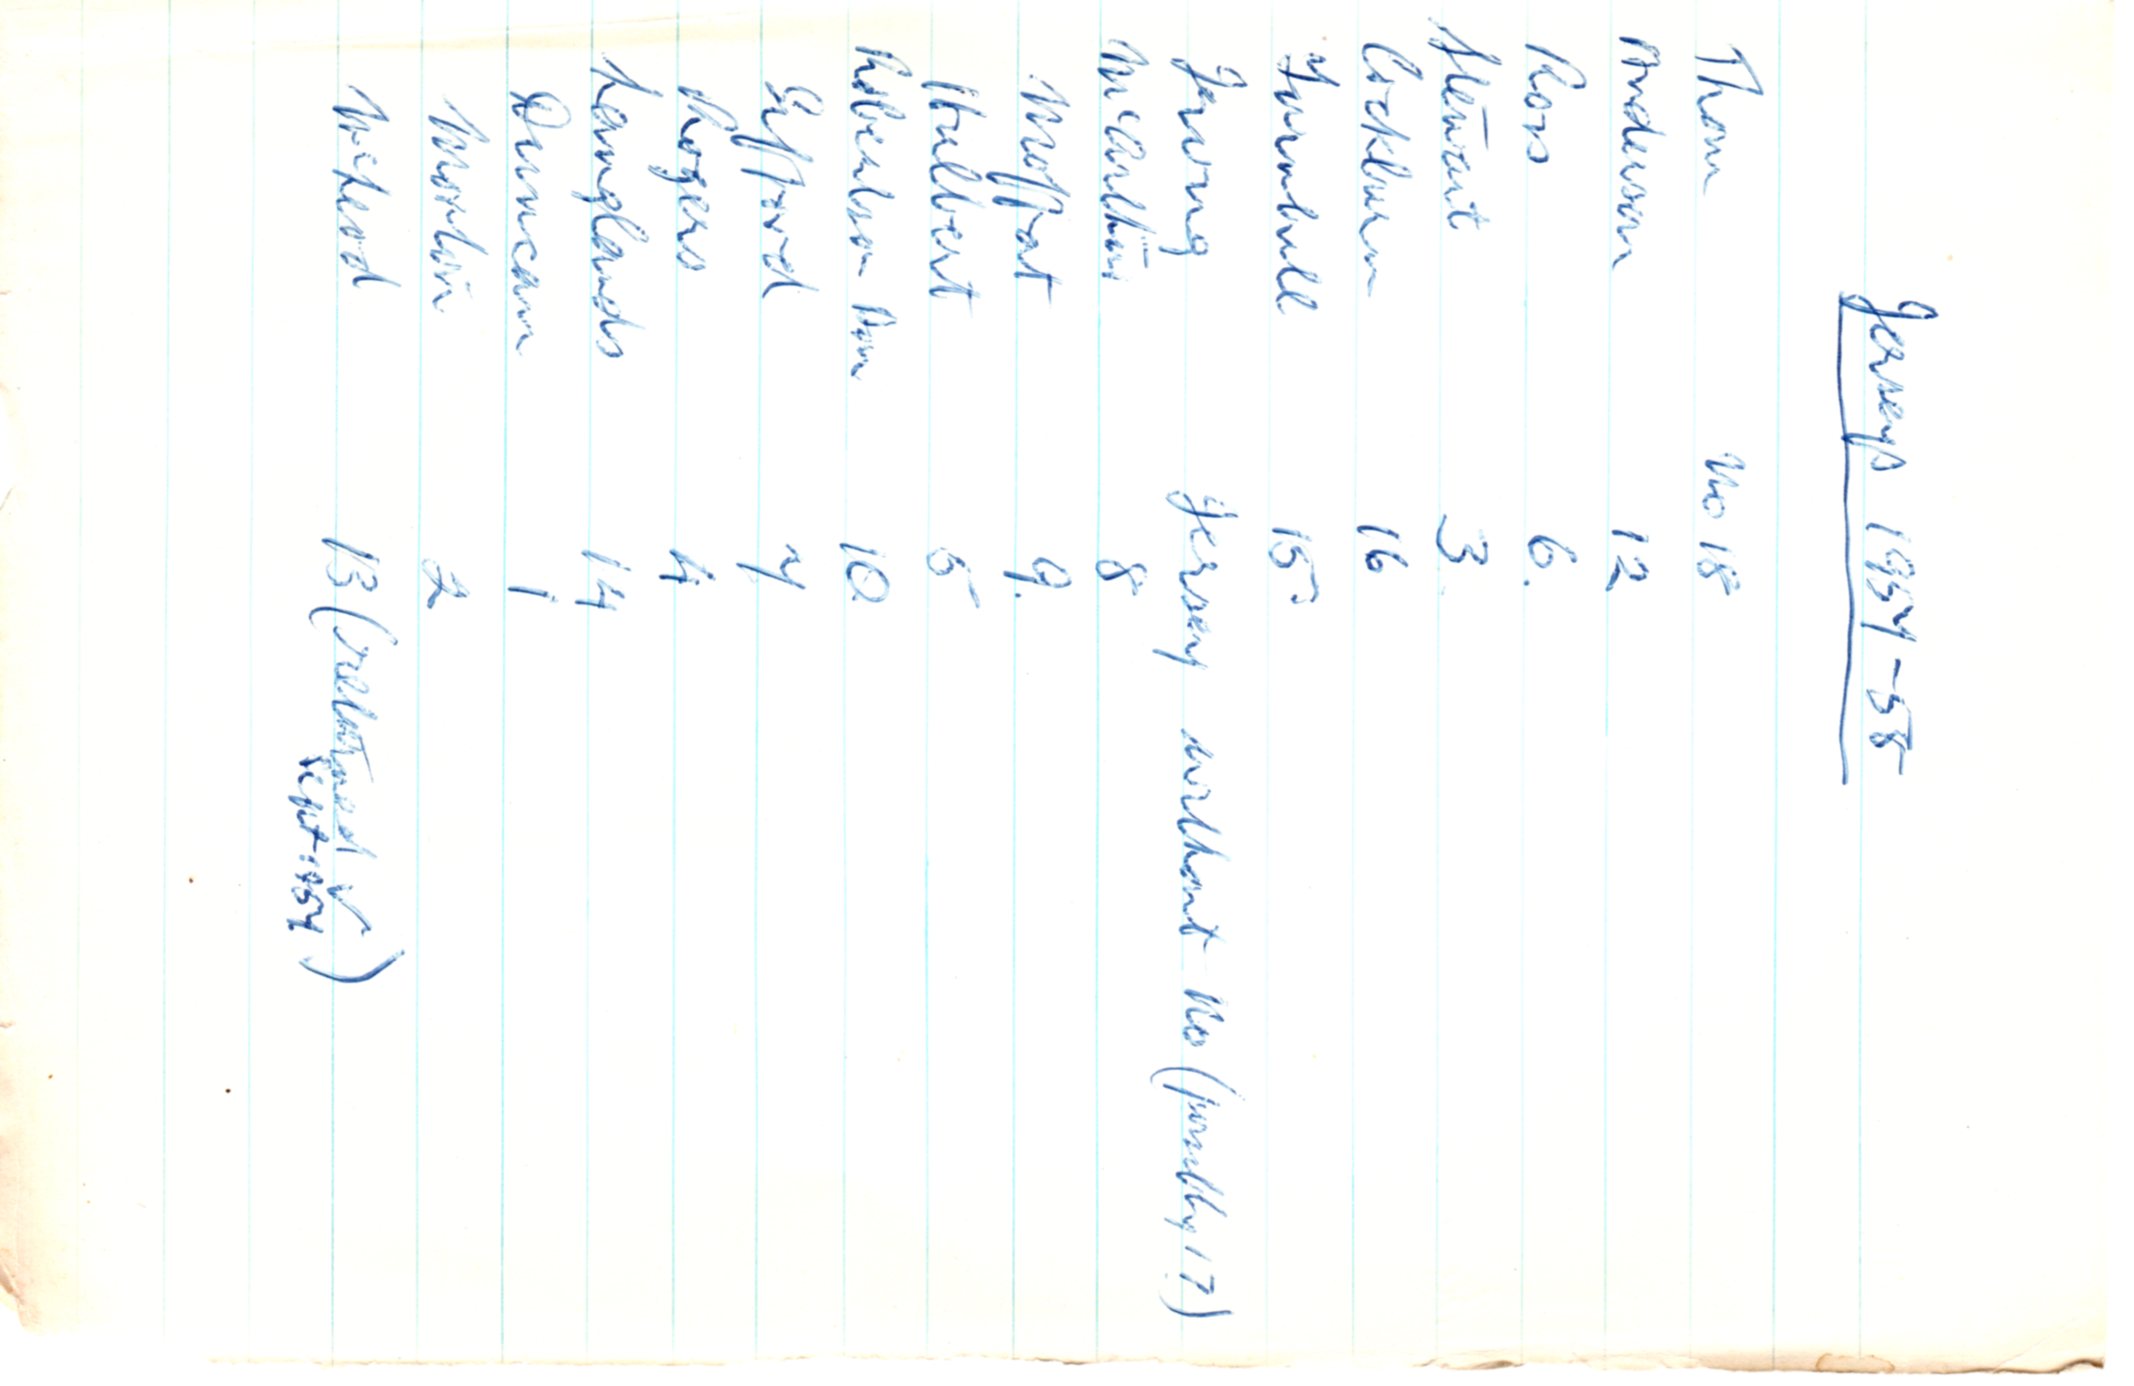 Jerseys 1957-58
Thom No 18
Anderson 12
Ross 6.
Stewart 3.
Cockburn 16
Turnbull 15
Irving Jersey without No (possibly 17)
McCarthur 8
Moffat 9.
Hulbert 5
Robertson Don 10
Gifford 7
Rogers 4
Langlands 14
Duncan 1
Morton 2
McLeod 13 (returned √
Sept. 1957)